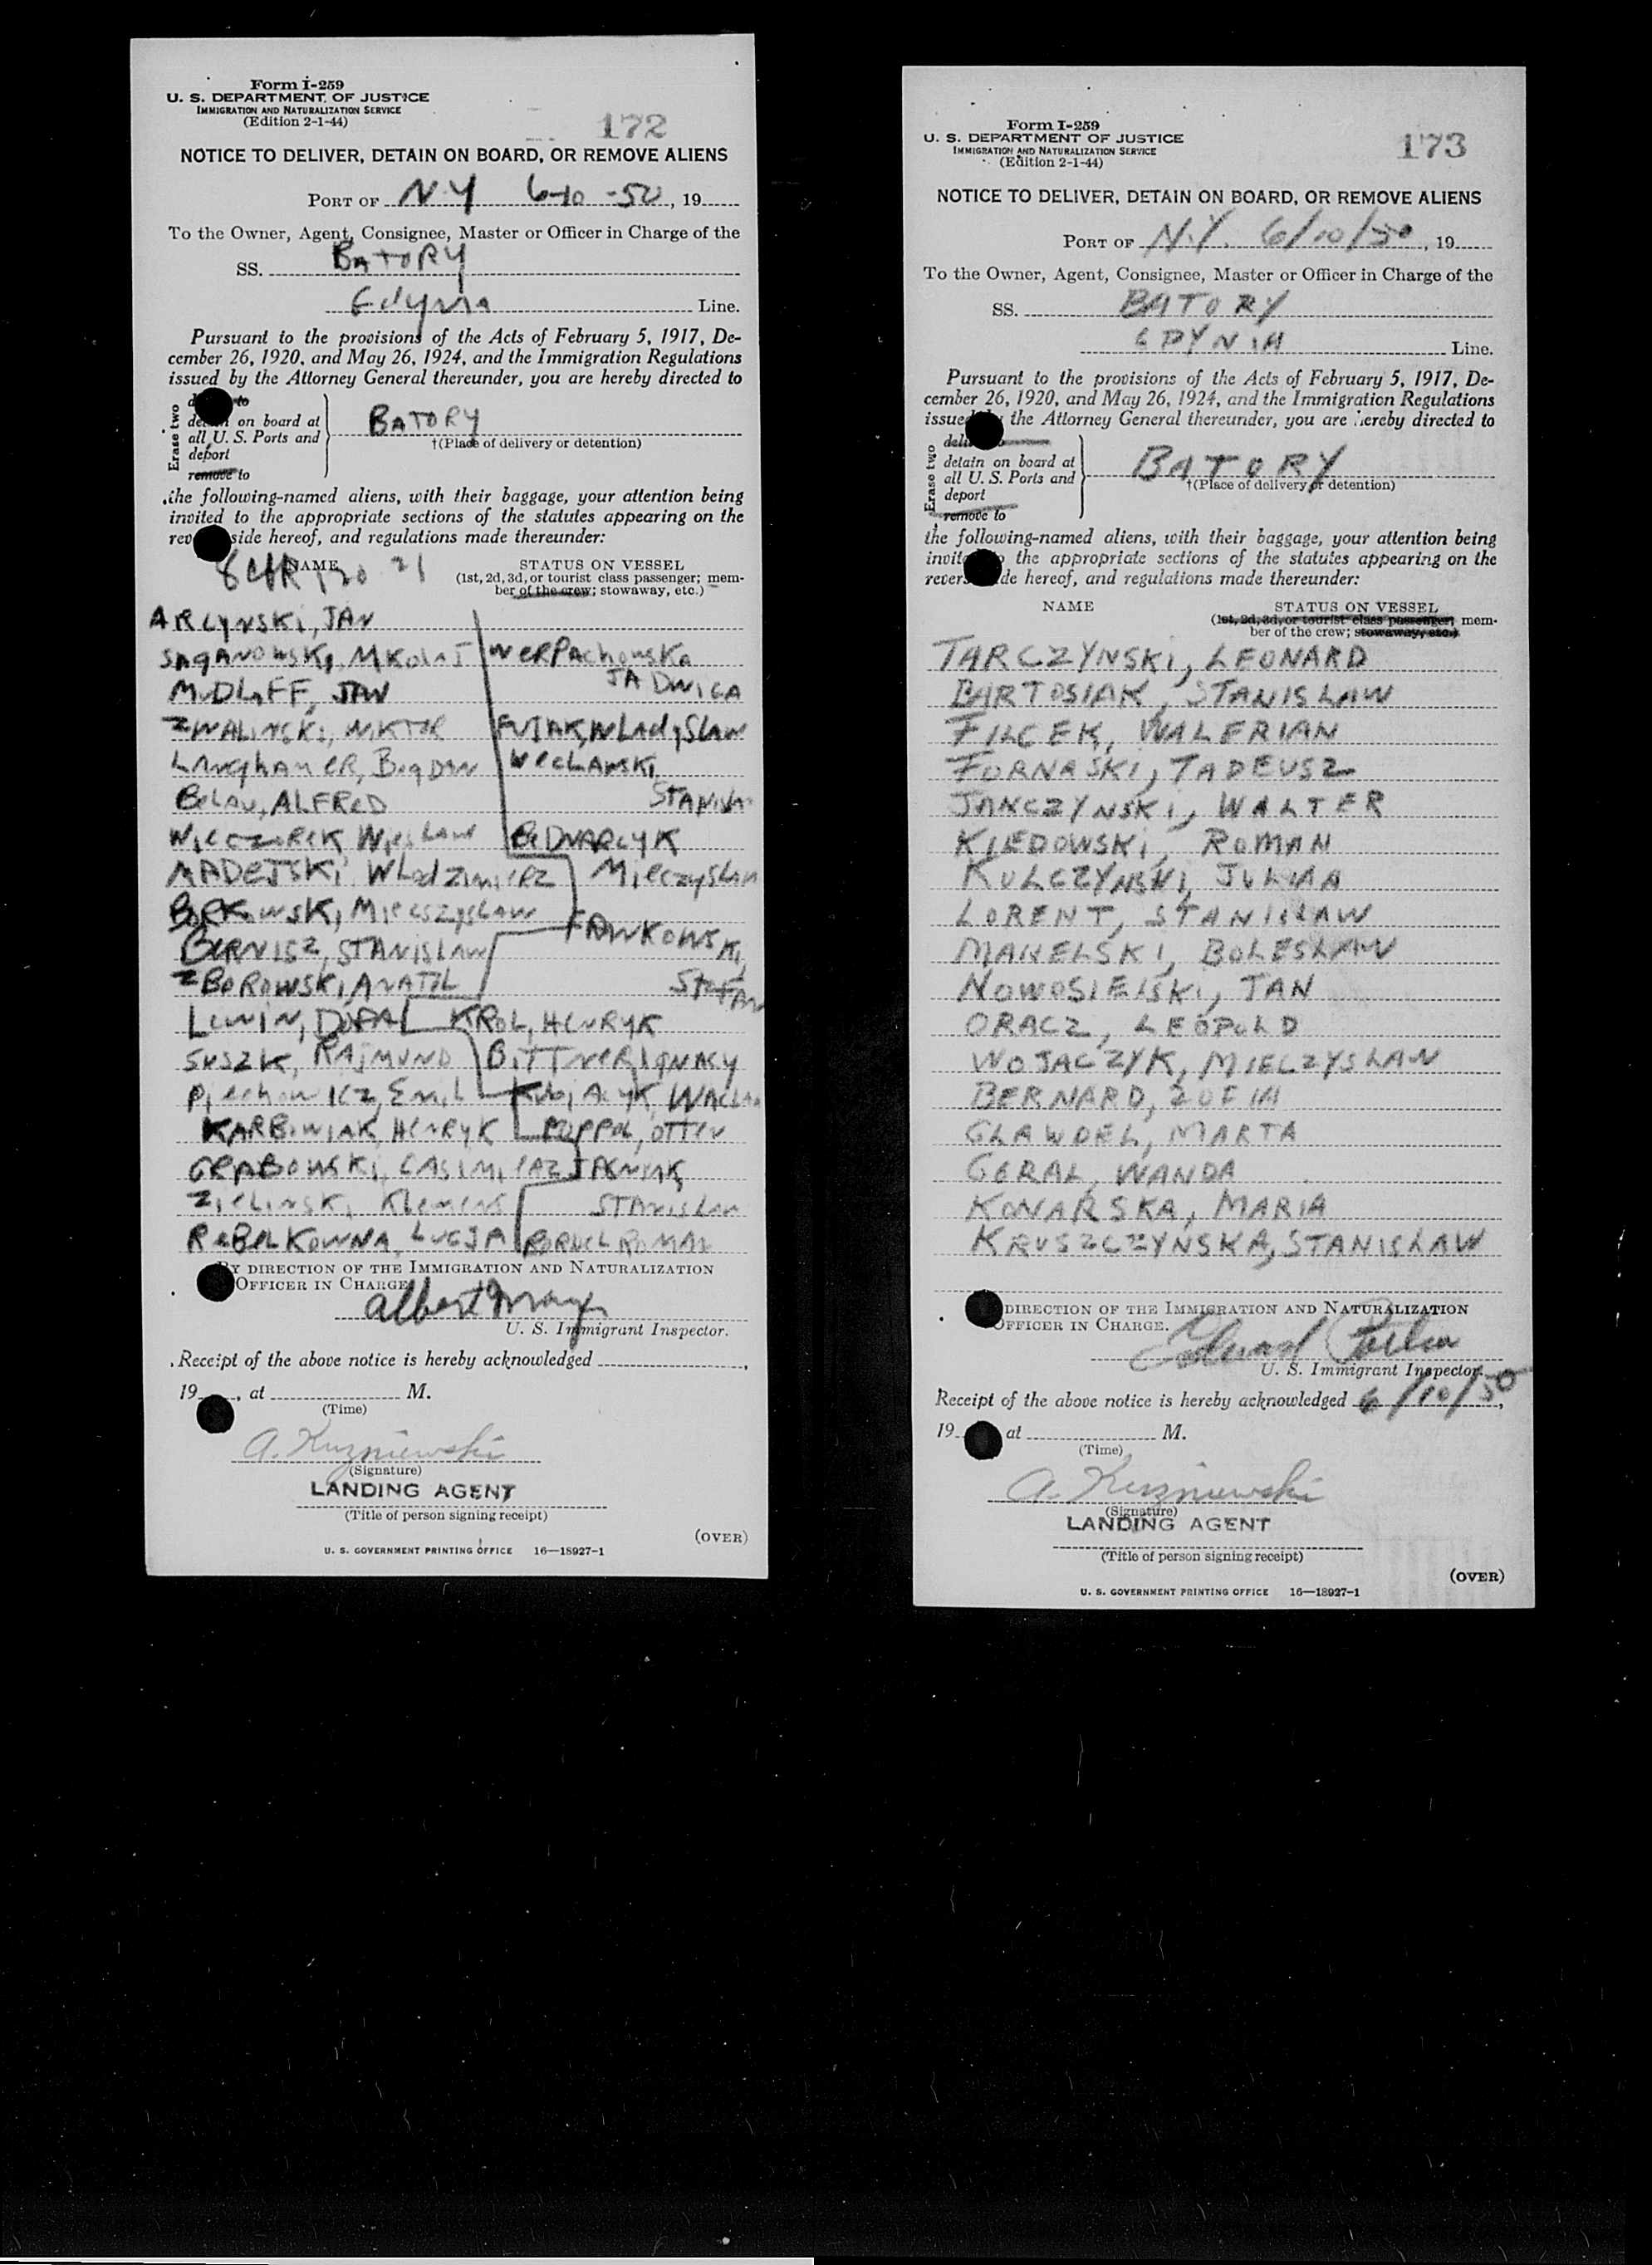 Form I-259
U. S. DEPARTMENT OF JUSTICE
IMMIGRATION AND NATURALIZATION SERVICE
(Edition 2-1-44)
172
NOTICE TO DELIVER, DETAIN ON BOARD, OR REMOVE ALIENS
PORT OF N.Y 6-10-50, 19
To the Owner, Agent, Consignee, Master or Officer in Charge of the
SS. BATORY
Line.
Pursuant to the provisions of the Acts of February 5, 1917, De-
cember 26, 1920, and May 26, 1924, and the Immigration Regulations
issued by the Attorney General thereunder, you are hereby directed to
Erase two
to
on board at
all U. S. Ports and
deport
remove to
BATORY
†(Place of delivery or detention)
the following-named aliens, with their baggage, your attention being
invited to the appropriate sections of the statutes appearing on the
side hereof, and regulations made thereunder:
NAME
21
STATUS ON VESSEL
(1st, 2d, 3d, or tourist class passenger; mem-
ber of the crew; stowaway, etc.)
ARCYNSKI, JAN
SAGANOWSKI, MKOLAJ
MUDLAFF, JAN
ZWALINSKI, WIKTOR
LANGHAMER, BOGDAN
BELAU, ALFRED
WIECZOREK, WIESLAW
MADEJSKI WLODZIMIERZ
BORKOWSKI, MIECSZYSLAW
BERNISZ, STANISLAW
ZBOROWSKI, ANATOL
SUSZK, RAJMUND
PIECHOWICZ, EMIL
KARBOWIAK, HENRYK
GRABOWSKI,
ZIELINSKI, KLEMENS
REBELKOWNA, LUCJA
WERPACHOWSKA
JADWIGA
WLADYSLAW
WECLAWSKI,
BEDNARCYK
MIECZYSLAW
STEFAN
KROL, HENRYK
BITTNER, IGNACY
STANISLAW
ROMAN
BY DIRECTION OF THE IMMIGRATION AND NATURALIZATION
OFFICER IN CHARGE
Albert
U. S. Immigrant Inspector.
Receipt of the above notice is hereby acknowledged
19, at M.
(Time)
A. Kuzniewski
(Signature)
LANDING AGENT
(Title of person signing receipt)
(OVER)
U. S. GOVERNMENT PRINTING OFFICE 16—18927-1
Form I-259
U. S. DEPARTMENT OF JUSTICE
IMMIGRATION AND NATURALIZATION SERVICE
(Edition 2-1-44)
173
NOTICE TO DELIVER, DETAIN ON BOARD, OR REMOVE ALIENS
PORT OF N.Y. 6/10/50, 19
To the Owner, Agent, Consignee, Master or Officer in Charge of the
SS. BATORY
GDYNIA Line.
Pursuant to the provisions of the Acts of February 5, 1917, De-
cember 26, 1920, and May 26, 1924, and the Immigration Regulations
the Attorney General thereunder, you are hereby directed to
Erase two
detain on board at
all U. S. Ports and
deport
remove to
BATORY
†(Place of delivery or detention)
the following-named aliens, with their baggage, your attention being
the appropriate sections of the statutes appearing on the
hereof, and regulations made thereunder:
NAME
STATUS ON VESSEL
(1st, 2d, 3d, or tourist class passenger; mem-
ber of the crew; stowaway, etc.)
TARCZYNSKI, LEONARD
BARTOSIAK, STANISLAW
FILCEK, WALERIAN
FORNASKI, TADEUSZ
JANCZYNSKI, WALTER
KLEDOWSKI, ROMAN
KULCZYNSKI, JULIAN
LORENT, STANISLAW
MAKELSKI, BOLESLAW
NOWOSIELSKI, JAN
ORACZ, LEOPOLD
WOJACZYK, MIECZYSLAW
BERNARD, ZOFIA
GLAWDEL, MARTA
GORAL, WANDA
KONARSKA, MARIA
KRUSZCZYNSKA, STANISLAW
DIRECTION OF THE IMMIGRATION AND NATURALIZATION
OFFICER IN CHARGE.
U. S. Immigrant Inspector.
Receipt of the above notice is hereby acknowledged 6/10/50,
19 at M.
(Time)
A. Kuzniewski
(Signature)
LANDING AGENT
(Title of person signing receipt)
(OVER)
U. S. GOVERNMENT PRINTING OFFICE 16—18927-1